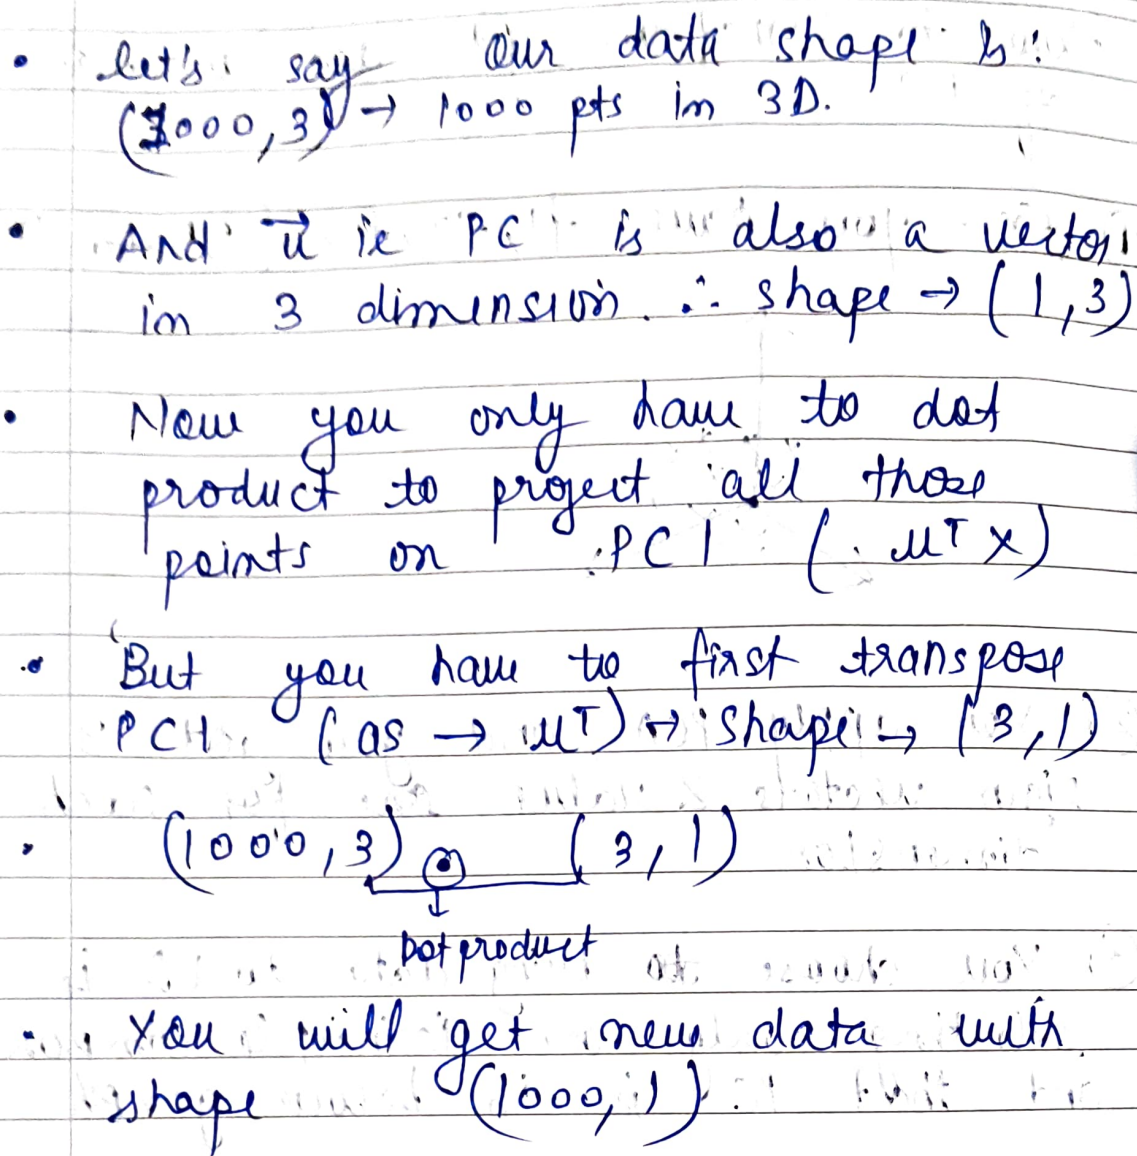 • let's say Our data shape is:
(1000,3) → 1000 pts in 3D.
• And u⃗ ie PC is also a vector
in 3 dimension. ∴ shape → (1,3)
• Now you only have to dot
product to project all those
points on PC1 (uᵀx)
• But you have to first transpose
PC1 (as → uᵀ) → shape → (3,1)
• (1000,3) ⊙ (3,1)
Dot product
• You will get new data with
shape (1000,1).